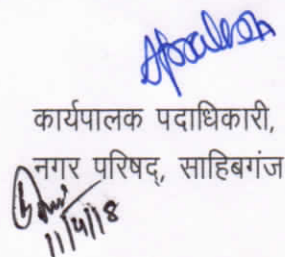 कार्यपालक पदाधिकारी,
नगर परिषद्, साहिबगंज
11/4/18